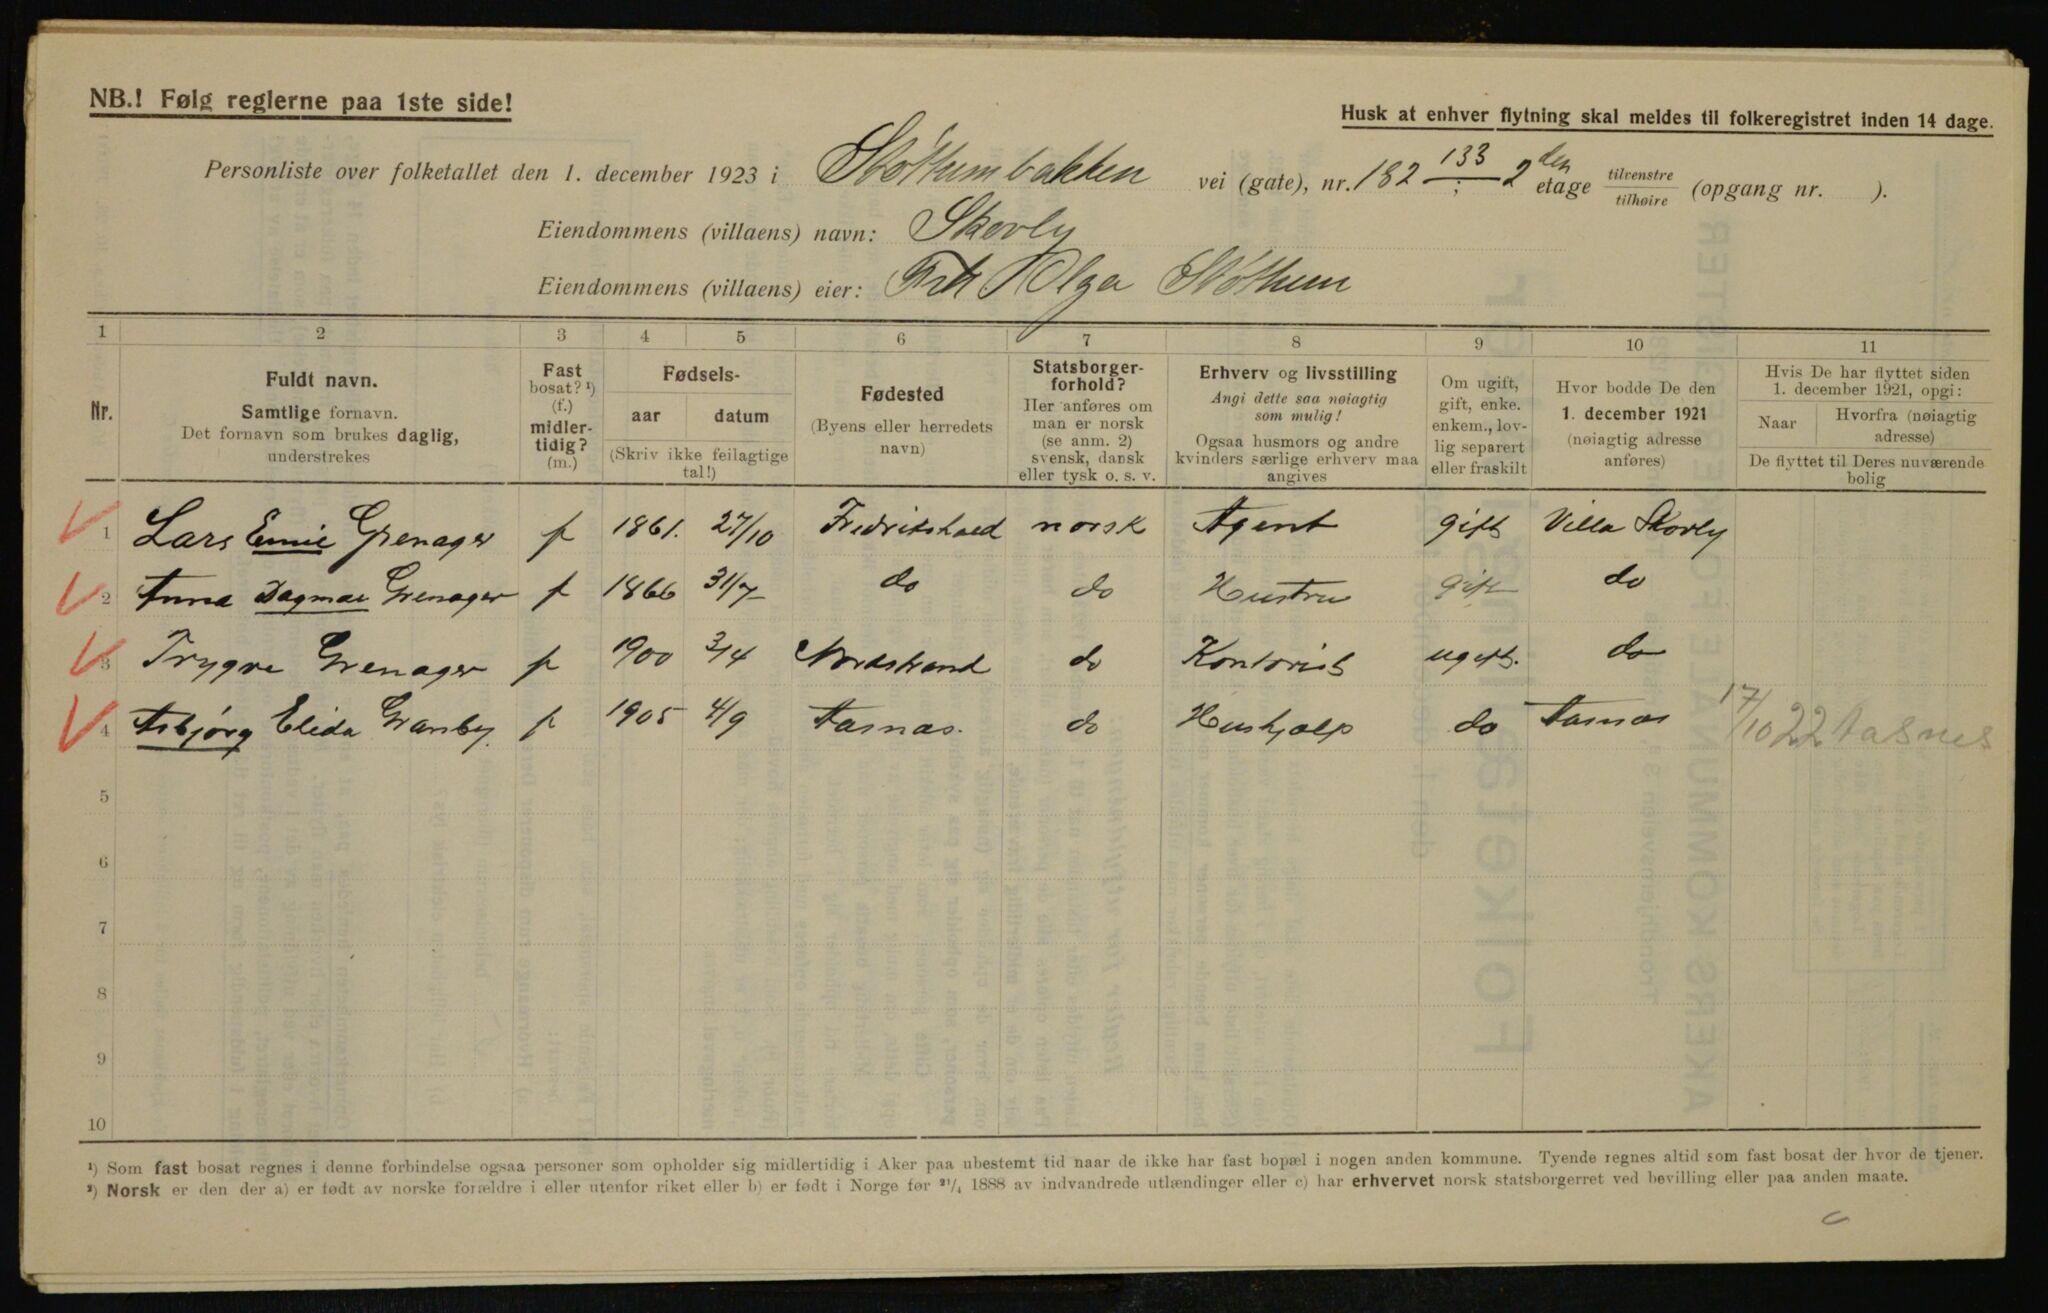 NB.! Følg reglerne paa 1ste side!
Husk at enhver flytning skal meldes til folkeregistret inden 14 dage.
Personliste over folketallet den 1. december 1923 i Støthumbakken vei (gate), nr. 182 133 ; 2 den etage tilvenstre tilhøire (opgang nr. ).
Eiendommens (villaens) navn: Skovly
Eiendommens (villaens) eier: Frk Olga Støthum
1 2 3 4 5 6 7 8 9 10 11
Nr.
Fuldt navn.
Samtlige fornavn.
Det fornavn som brukes daglig,
understrekes
Fast
bosat? ¹)
(f.)
midler-
tidig?
(m.)
Fødsels-
aar datum
(Skriv ikke feilagtige
tal!)
Fødested
(Byens eller herredets
navn)
Statsborger-
forhold?
Her anføres om
man er norsk
(se anm. 2)
svensk, dansk
eller tysk o. s. v.
Erhverv og livsstilling
Angi dette saa nøiagtig
som mulig!
Ogsaa husmors og andre
kvinders særlige erhverv maa
angives
Om ugift,
gift, enke.
enkem., lov-
lig separert
eller fraskilt
Hvor bodde De den
1. december 1921
(nøiagtig adresse
anføres)
Hvis De har flyttet siden
1. december 1921, opgi:
Naar
Hvorfra (nøiagtig
adresse)
De flyttet til Deres nuværende
bolig
1 Lars Emil Grenager f 1861. 27/10 Fredrikshald norsk Agent gift Villa Skovly
2 Anna Dagmar Grenager f 1866 31/7 do do Hustru gift do
3 Trygve Grenager f 1900 3/4 Nordstrand do Kontorist ugift. do
4 Asbjørg Elida Granby f 1905 4/9 Aasnas. do Hushjælp do Aasnas 17/10 22 Aasnes
5
6
7
8
9
10
¹) Som fast bosat regnes i denne forbindelse ogsaa personer som opholder sig midlertidig i Aker paa ubestemt tid naar de ikke har fast bopæl i nogen anden kommune. Tyende regnes altid som fast bosat der hvor de tjener.
²) Norsk er den der a) er født av norske forældre i eller utenfor riket eller b) er født i Norge før ²¹/₄ 1888 av indvandrede utlændinger eller c) har erhvervet norsk statsborgerret ved bevilling eller paa anden maate.